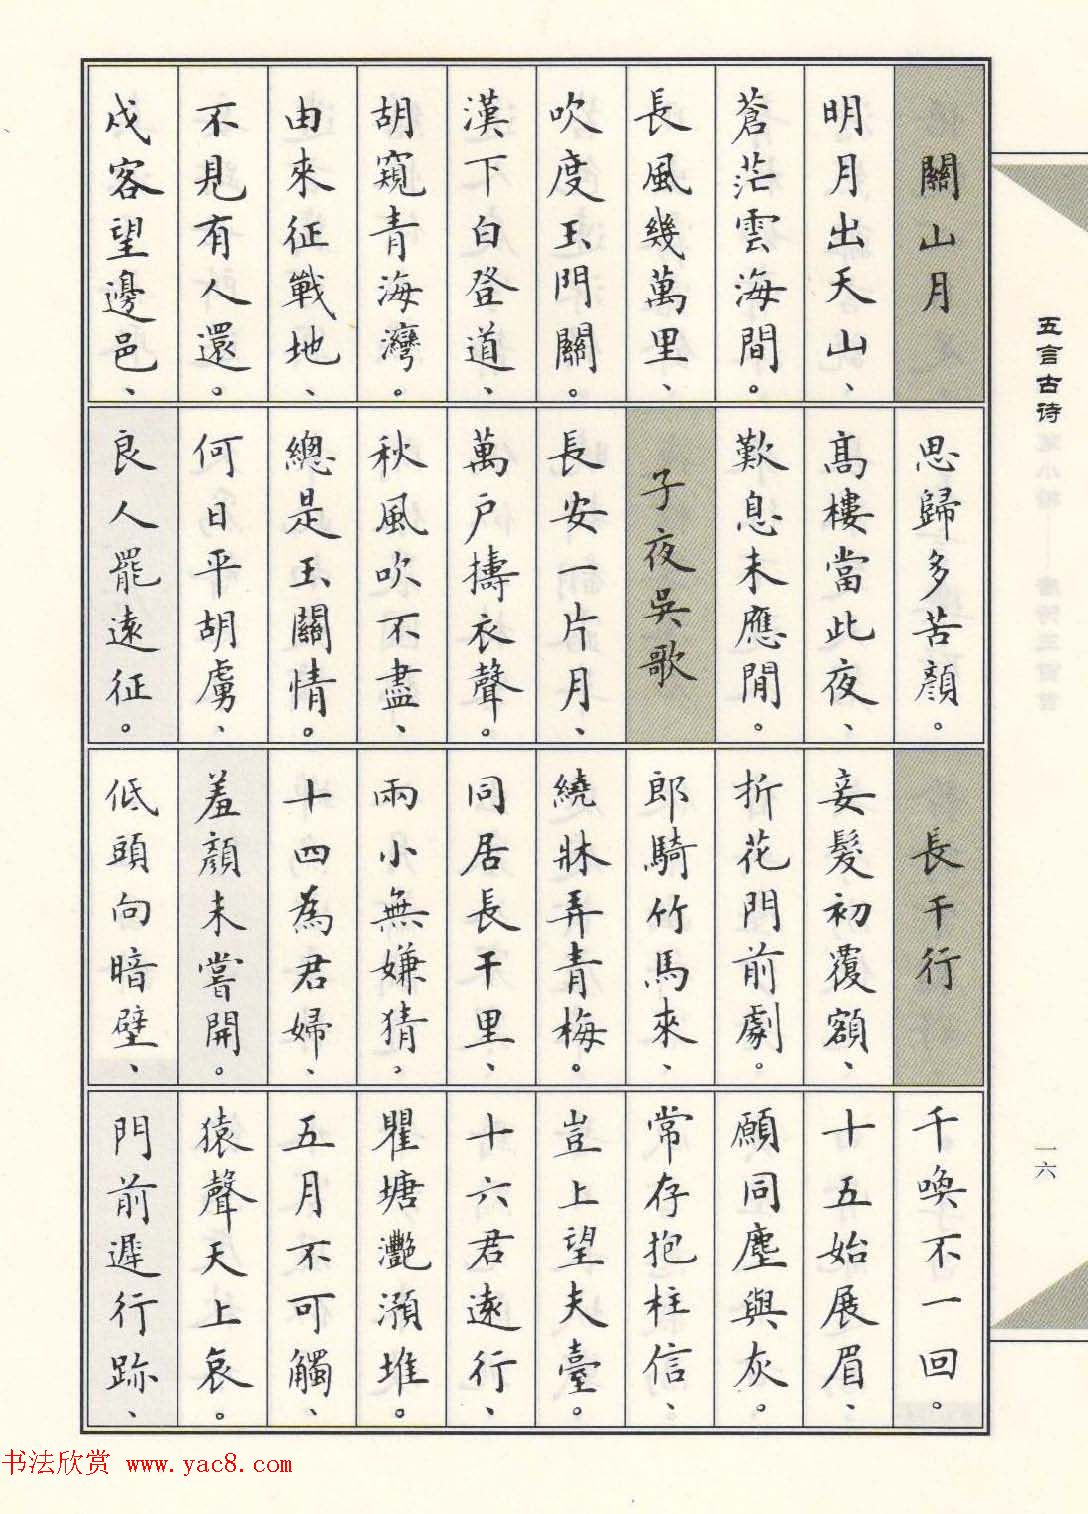 關山月
明月出天山、
蒼茫雲海間。
長風幾萬里、
吹度玉門關。
漢下白登道、
胡窺青海灣。
由來征戰地、
不見有人還。
戍客望邊邑、
思歸多苦顏。
高樓當此夜、
歎息未應閒。
子夜吳歌
長安一片月、
萬戶擣衣聲。
秋風吹不盡、
總是玉關情。
何日平胡虜、
良人罷遠征。
長干行
妾髮初覆額、
折花門前劇。
郎騎竹馬來、
繞牀弄青梅。
同居長干里、
兩小無嫌猜，
十四為君婦、
羞顏未嘗開。
低頭向暗壁、
千喚不一回。
十五始展眉、
願同塵與灰。
常存抱柱信、
豈上望夫臺。
十六君遠行、
瞿塘灩澦堆。
五月不可觸、
猿聲天上哀。
門前遲行跡、
五言古诗
一六
书法欣赏 www.yac8.com